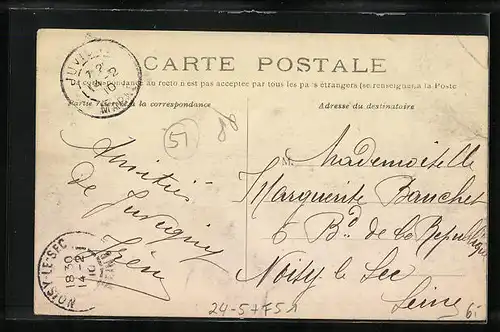 CARTE POSTALE
La correspondance au recto n'est pas acceptée par tous les pays étrangers (se renseigner à la Poste
Partie réservée à la correspondance
Adresse du destinataire
JUVIGNY
MARNE
51
Amitiés
de Juvigny
Irène
M. Mademoiselle
Marguerite Banchet
6 Bd de la République
Noisy le Sec
Seine
NOISY-LE-SEC
18 30
14-2
10
24-5+751
6-